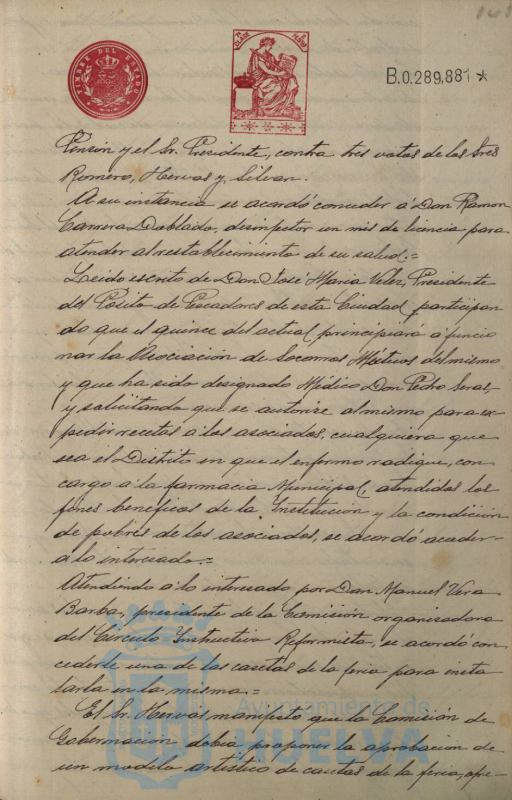 TIMBRE DEL ESTADO
B.0.289,881 *
Pinzón y el Sr. Presidente, contra tres votos de los Sres
Romero, Hervas y Silvan.
A su instancia se acordó conceder á Don Ramon
Carrera Doblado, desinfector un mes de licencia para
atender al restablecimiento de su salud.=
Leido escrito de Don José Maria Velez, Presidente
del Pósito de Pescadores de esta Ciudad participan
do que el quince del actual principiará á funcio
nar la Asociación de Socorros Mútuos del mismo
y que ha sido designado Médico Don Pedro Seras,
y solicitando que se autorize al mismo para ex
pedir recetas á los asociados, cualquiera que
sea el Distrito en que el enfermo radique, con
cargo á la farmacia Municipal, atendidos los
fines benéficos de la Institución y la condición
de pobres de los asociados, se acordó acceder
á lo interesado.=
Atendiendo á lo interesado por Don Manuel Vera
Barba, presidente de la Comisión organizadora
del Circulo Instructivo Reformista, se acordó con
cederle una de las casetas de la feria para insta
larla en la misma.=
El Sr. Hervas manifestó que la Comisión de
Gobernación, debia proponer la aprobación de
un modelo artistico de casetas de la feria, apre-
Ayuntamiento de
HUELVA